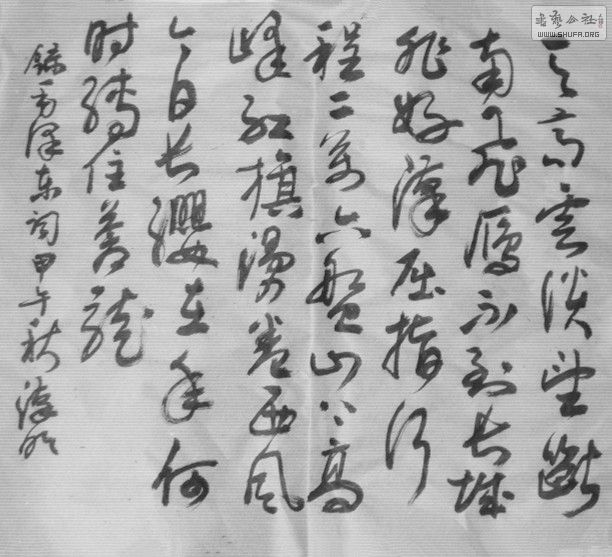 天高雲淡望斷
南飞雁不到长城
非好漢屈指行
程二萬六盤山上高
峰红旗漫卷西风
今日长缨在手何
时缚住蒼龍
錄毛澤东词甲午秋
书艺公社
WWW.SHUFA.ORG